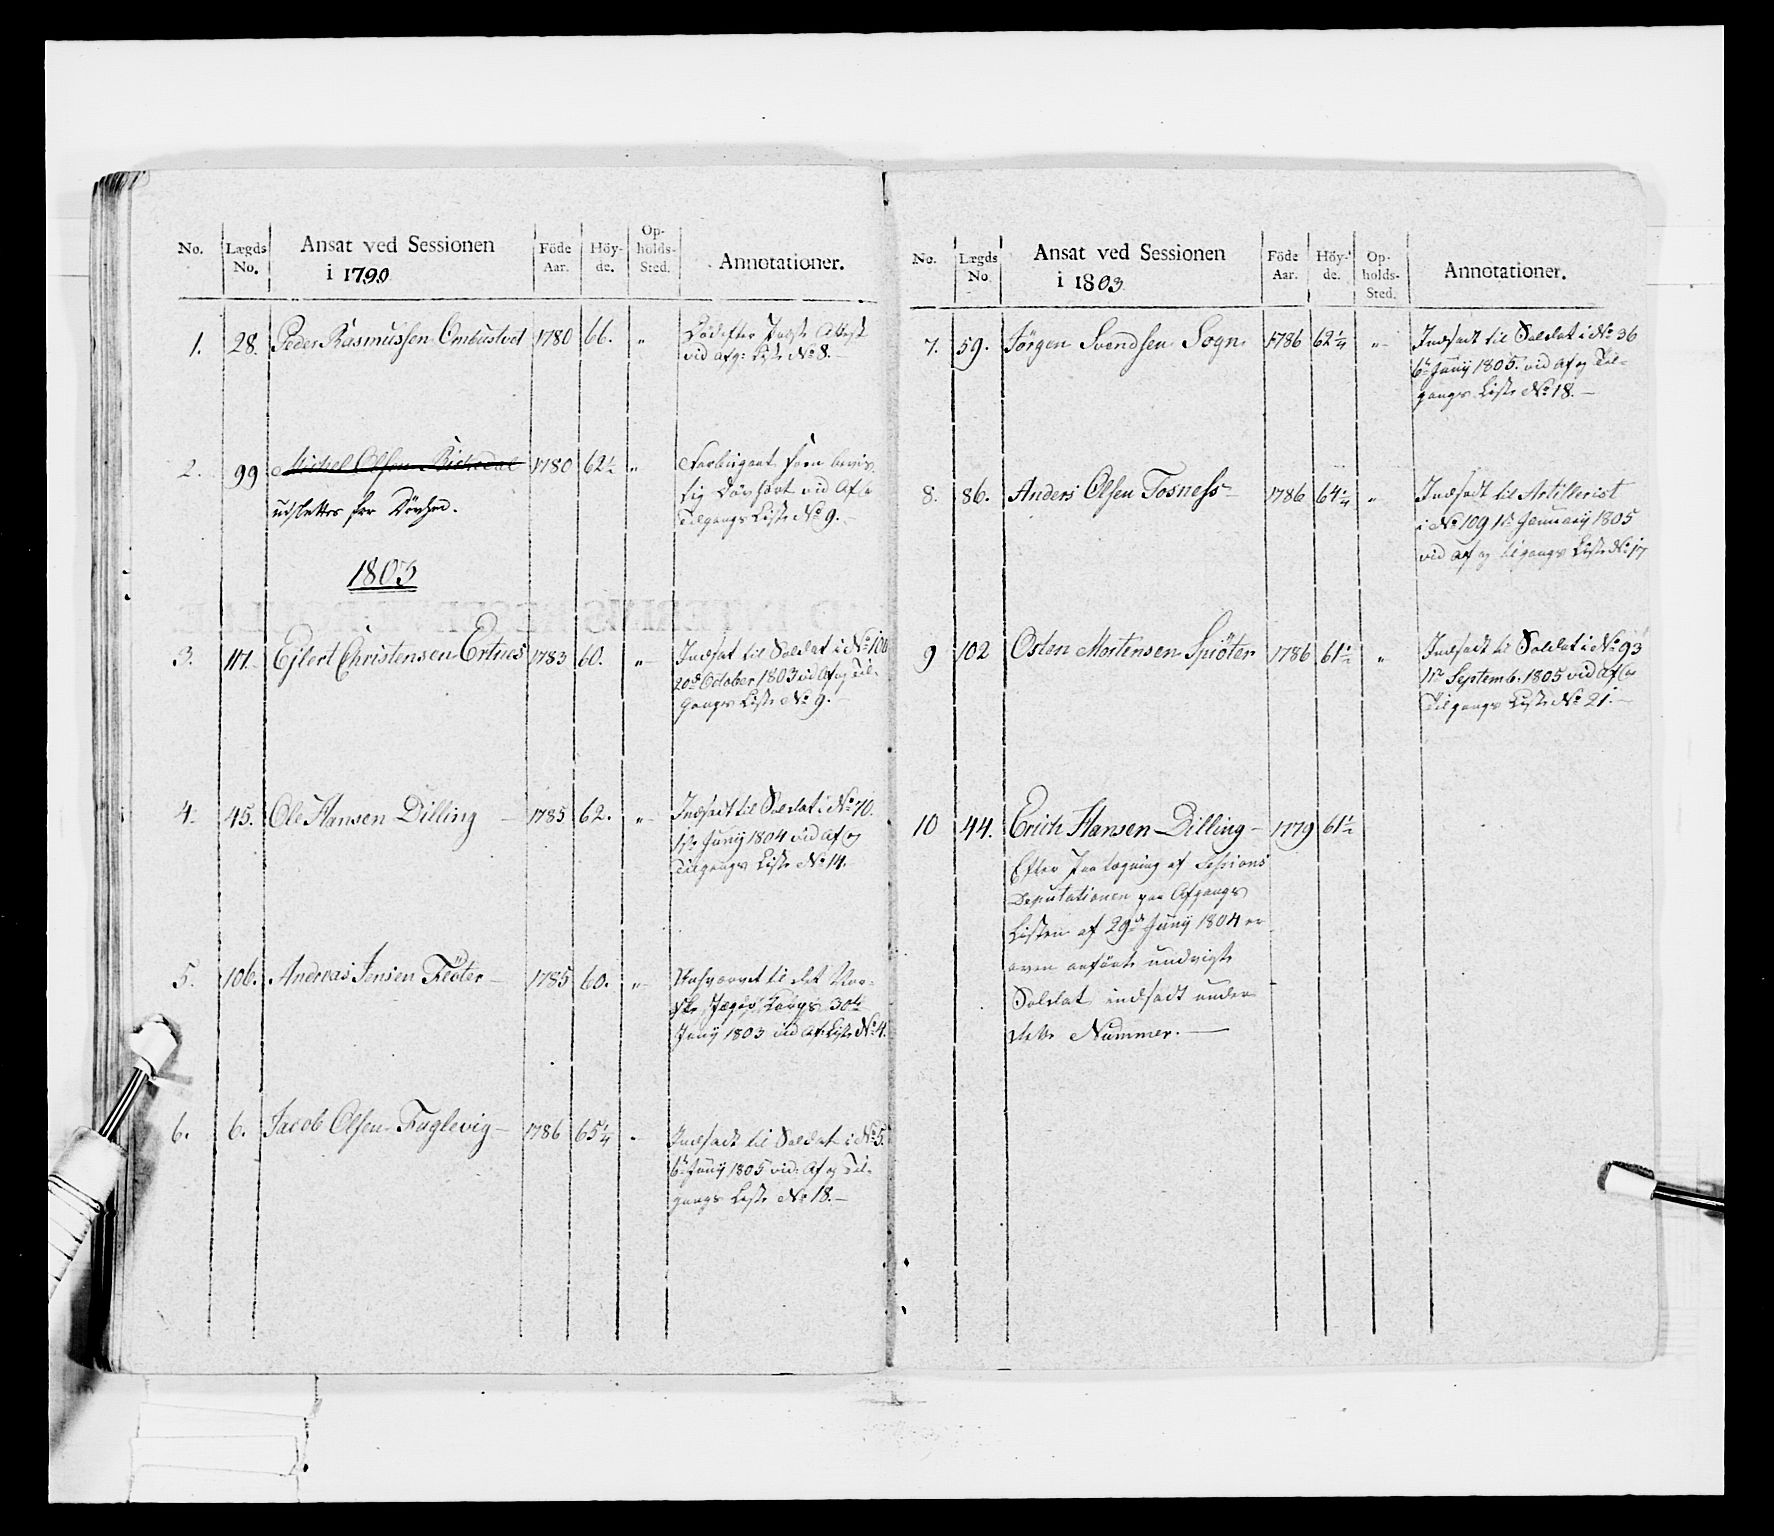 No. Lægds No. Ansat ved Sessionen i 1790 Föde Aar. Höy-de. Op-holds-Sted. Annotationer.
1. 28. Peder Rasmussen Ombustvet 1780 66. " Död efter Præste Attest
vid Afg: Liste No 8.
2. 99 Michel Olsen 1780 62½ "
udslettes for Dövhed.
sig Döv vid Af og
Tilgangs Liste No 9.
1803
3. 117. Ejlert Christensen Ertnes 1783 60. " Indsat til Soldat i No 100
20de October 1803 vid Af og Til-
gangs Liste No 9.
4. 45. Ole Hansen Dilling 1785 62. " Indsadt til Soldat i No 70.
1ste Junij 1804 vid Af og
Tilgangs Liste No 14.
5. 106. Andreas Jensen Flöter 1785 60. " til det Nor-
ske Jæger Corps 30te
Junij 1803 vid Af: Liste No 4.
6. 6. Jacob Olsen Fuglevig 1786 65¼ " Indsadt til Soldat i No 5.
6te Junij 1805 vid Af og Til-
gangs Liste No 18.
No. Lægds No Ansat ved Sessionen i 1803 Föde Aar. Höy-de. Op-holds-Sted. Annotationer.
7. 59. Jörgen Svendsen Sogn 1786 62¼ " Indsadt til Soldat i No 36
6te Junij 1805. vid Af og Til-
gangs Liste No 18.
8. 86. Anders Olsen Tosness 1786 64¼ " Indsadt til Artillerist
i No 109 1te Januarij 1805
vid Af og tilgangs Liste No 17
9 102 Osten Mortensen Spiöter 1786 61½ " Indsadt til Soldat i No 93
1te Septemb. 1805 vid Af og
Tilgangs Liste No 21.
10 44. Erich Hansen Dilling 1779 61½
Efter Paategning af Sessions
Deputationen paa Afgangs
Listen af 29de Junij 1804 er
oven anförte
Soldat indsadt under
dette Nummer.